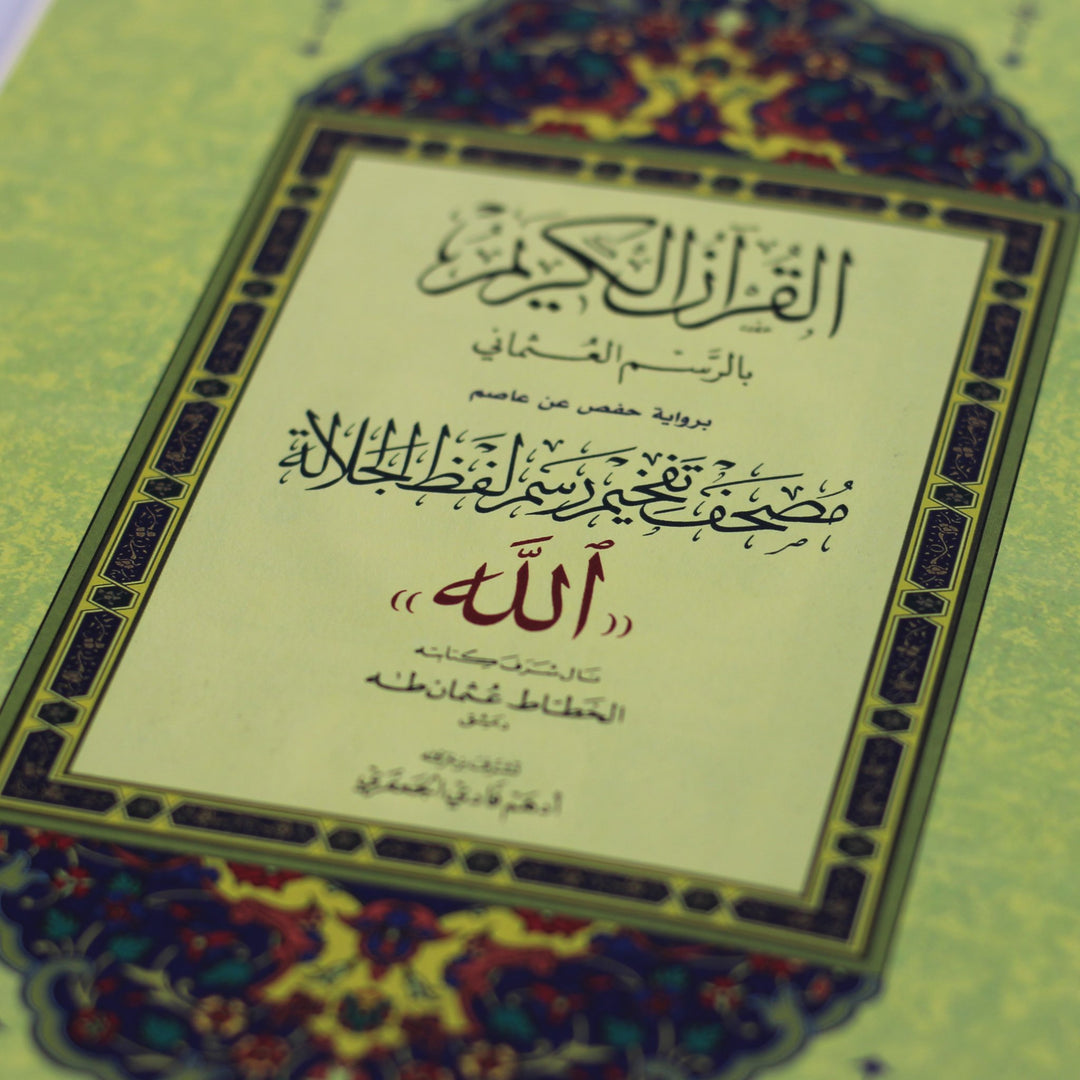 القُرآن الكَريم
بالرَّسْم العُثماني
برواية حفص عن عاصم
مُصْحَف تَفْخيم رَسْم لَفْظ الجَلالَة
«ٱللَّه»
نال شرف كتابته
الخطاط عُثمان طه
دمشق
أدهم فادي الجعفري